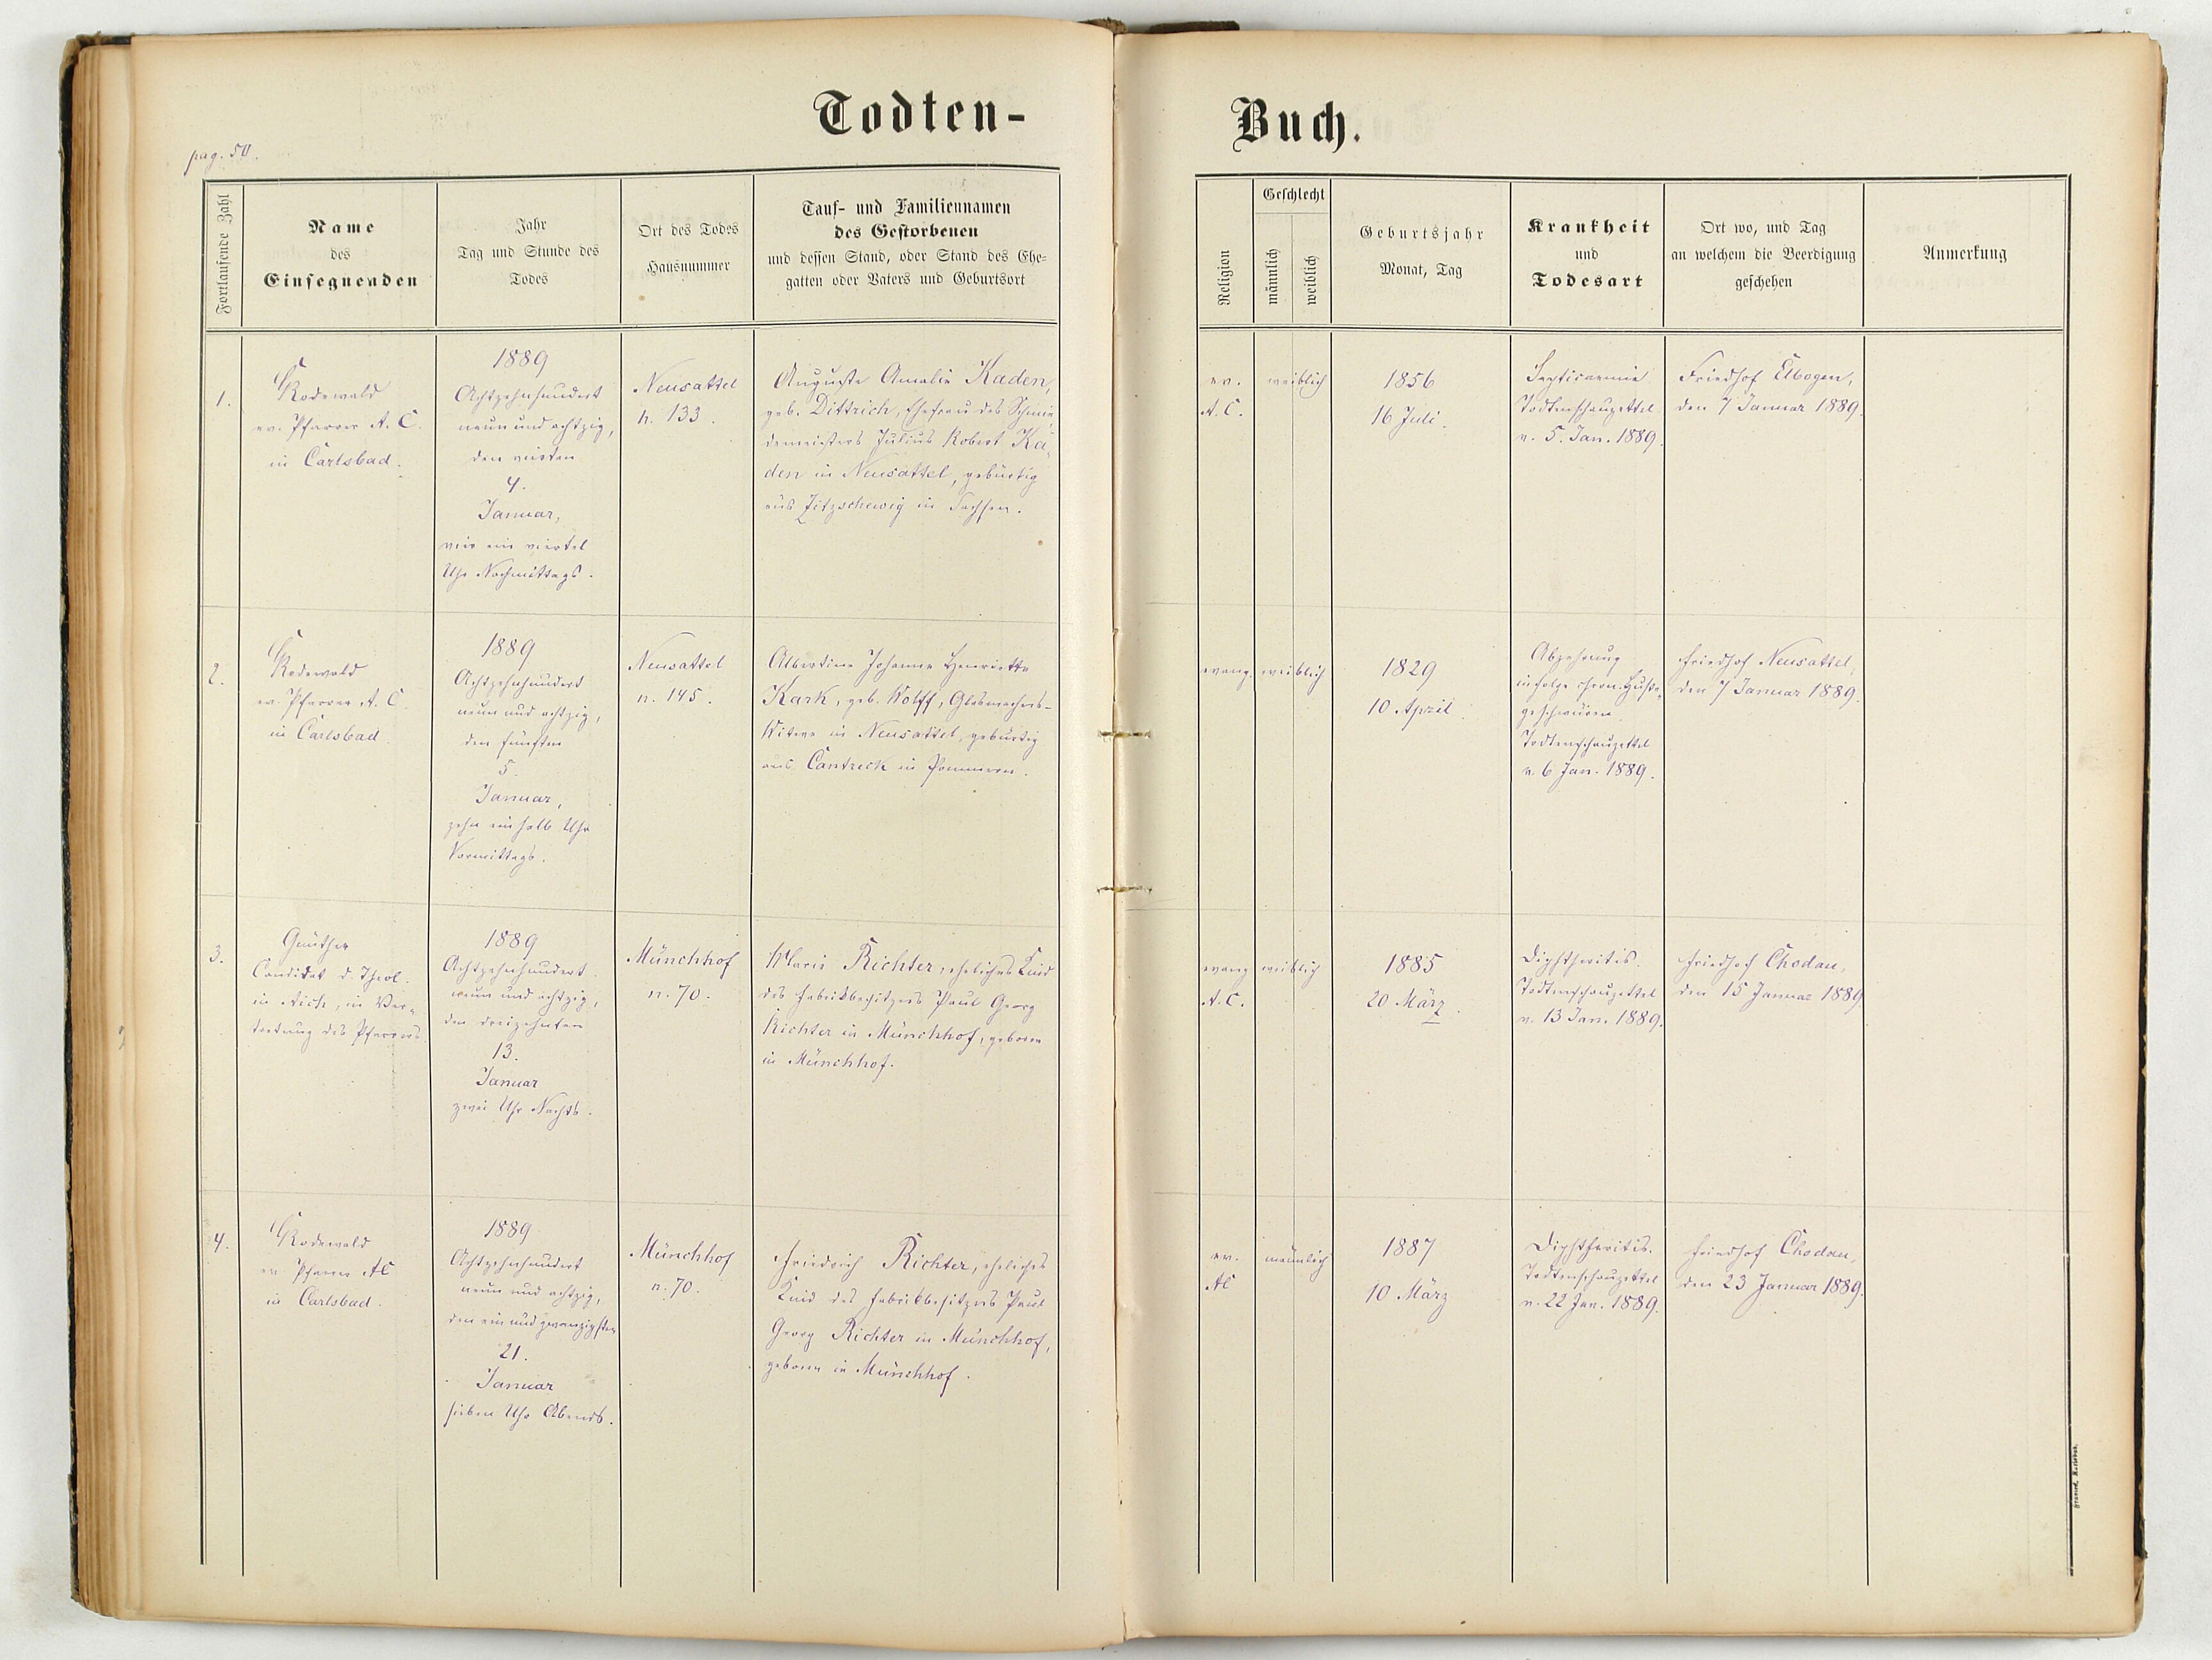 Todten-
Buch.
pag. 50.
Fortlaufende Zahl
Name
des
Einsegnenden
Jahr
Tag und Stunde des
Todes
Ort des Todes
Hausnummer
Tauf- und Familiennamen
des Gestorbenen
und dessen Stand, oder Stand des Ehe-
gatten oder Vaters und Geburtsort
Religion
Geschlecht
männlich
weiblich
Geburtsjahr
Monat, Tag
Krankheit
und
Todesart
Ort wo, und Tag
an welchem die Beerdigung
geschehen
Anmerkung
1.
Rodewald
ev. Pfarrer A. C.
in Carlsbad.
1889
Achtzehnhundert
neun und achtzig,
den vierten
4.
Januar,
vier ein viertel
Uhr Nachmittags.
Neusattel
n. 133.
Auguste Amalie Kaden,
geb. Dittrich, Ehefrau des Schmie-
demeisters Julius Robert Ka-
den in Neusattel, gebürtig
aus Zitzschewig in Sachsen.
ev.
A. C.
weiblich
1856
16 Juli.
Septicaemie
Todtenschauzettel
v. 5. Jan. 1889.
Friedhof Elbogen,
den 7 Januar 1889.
2.
Rodewald
ev. Pfarrer A. C.
in Carlsbad
1889
Achtzehnhundert
neun und achtzig,
den fünften
5.
Januar,
zehn einhalb Uhr
Vormittags.
Neusattel
n. 145.
Albertine Johanne Henriette
Kark, geb. Wolff, Glasmachers-
Witwe in Neusattel, gebürtig
aus Cantreck in Pommern.
evang.
weiblich
1829
10 April.
Abzehrung
infolge chron. Fuß-
geschwüren
Todtenschauzettel
v. 6 Jan. 1889.
Friedhof Neusattel,
den 7 Januar 1889.
3.
Günther
Candidat d. Theol.
in Aich, in Ver-
tretung des Pfarrers
1889
Achtzehnhundert
neun und achtzig,
den dreizehnten
13.
Januar
zwei Uhr Nachts.
Münchhof
n. 70.
Marie Richter, eheliches Kind
des Fabrikbesitzers Paul Georg
Richter in Münchhof, geboren
in Münchhof.
evang
A. C.
weiblich
1885
20 März.
Diphtheritis.
Todtenschauzettel
v. 13 Jan. 1889.
Friedhof Chodau,
den 15 Januar 1889.
4.
Rodewald
ev. Pfarrer AC
in Carlsbad.
1889
Achtzehnhundert
neun und achtzig,
den ein und zwanzigsten
21.
Januar
sieben Uhr Abends.
Münchhof
n. 70.
Friedrich Richter, eheliches
Kind des Fabrikbesitzers Paul
Georg Richter in Münchhof,
geboren in Münchhof.
ev.
AC
männlich
1887
10 März
Diphtheritis.
Todtenschauzettel
v. 22 Jan. 1889.
Friedhof Chodau,
den 23 Januar 1889.